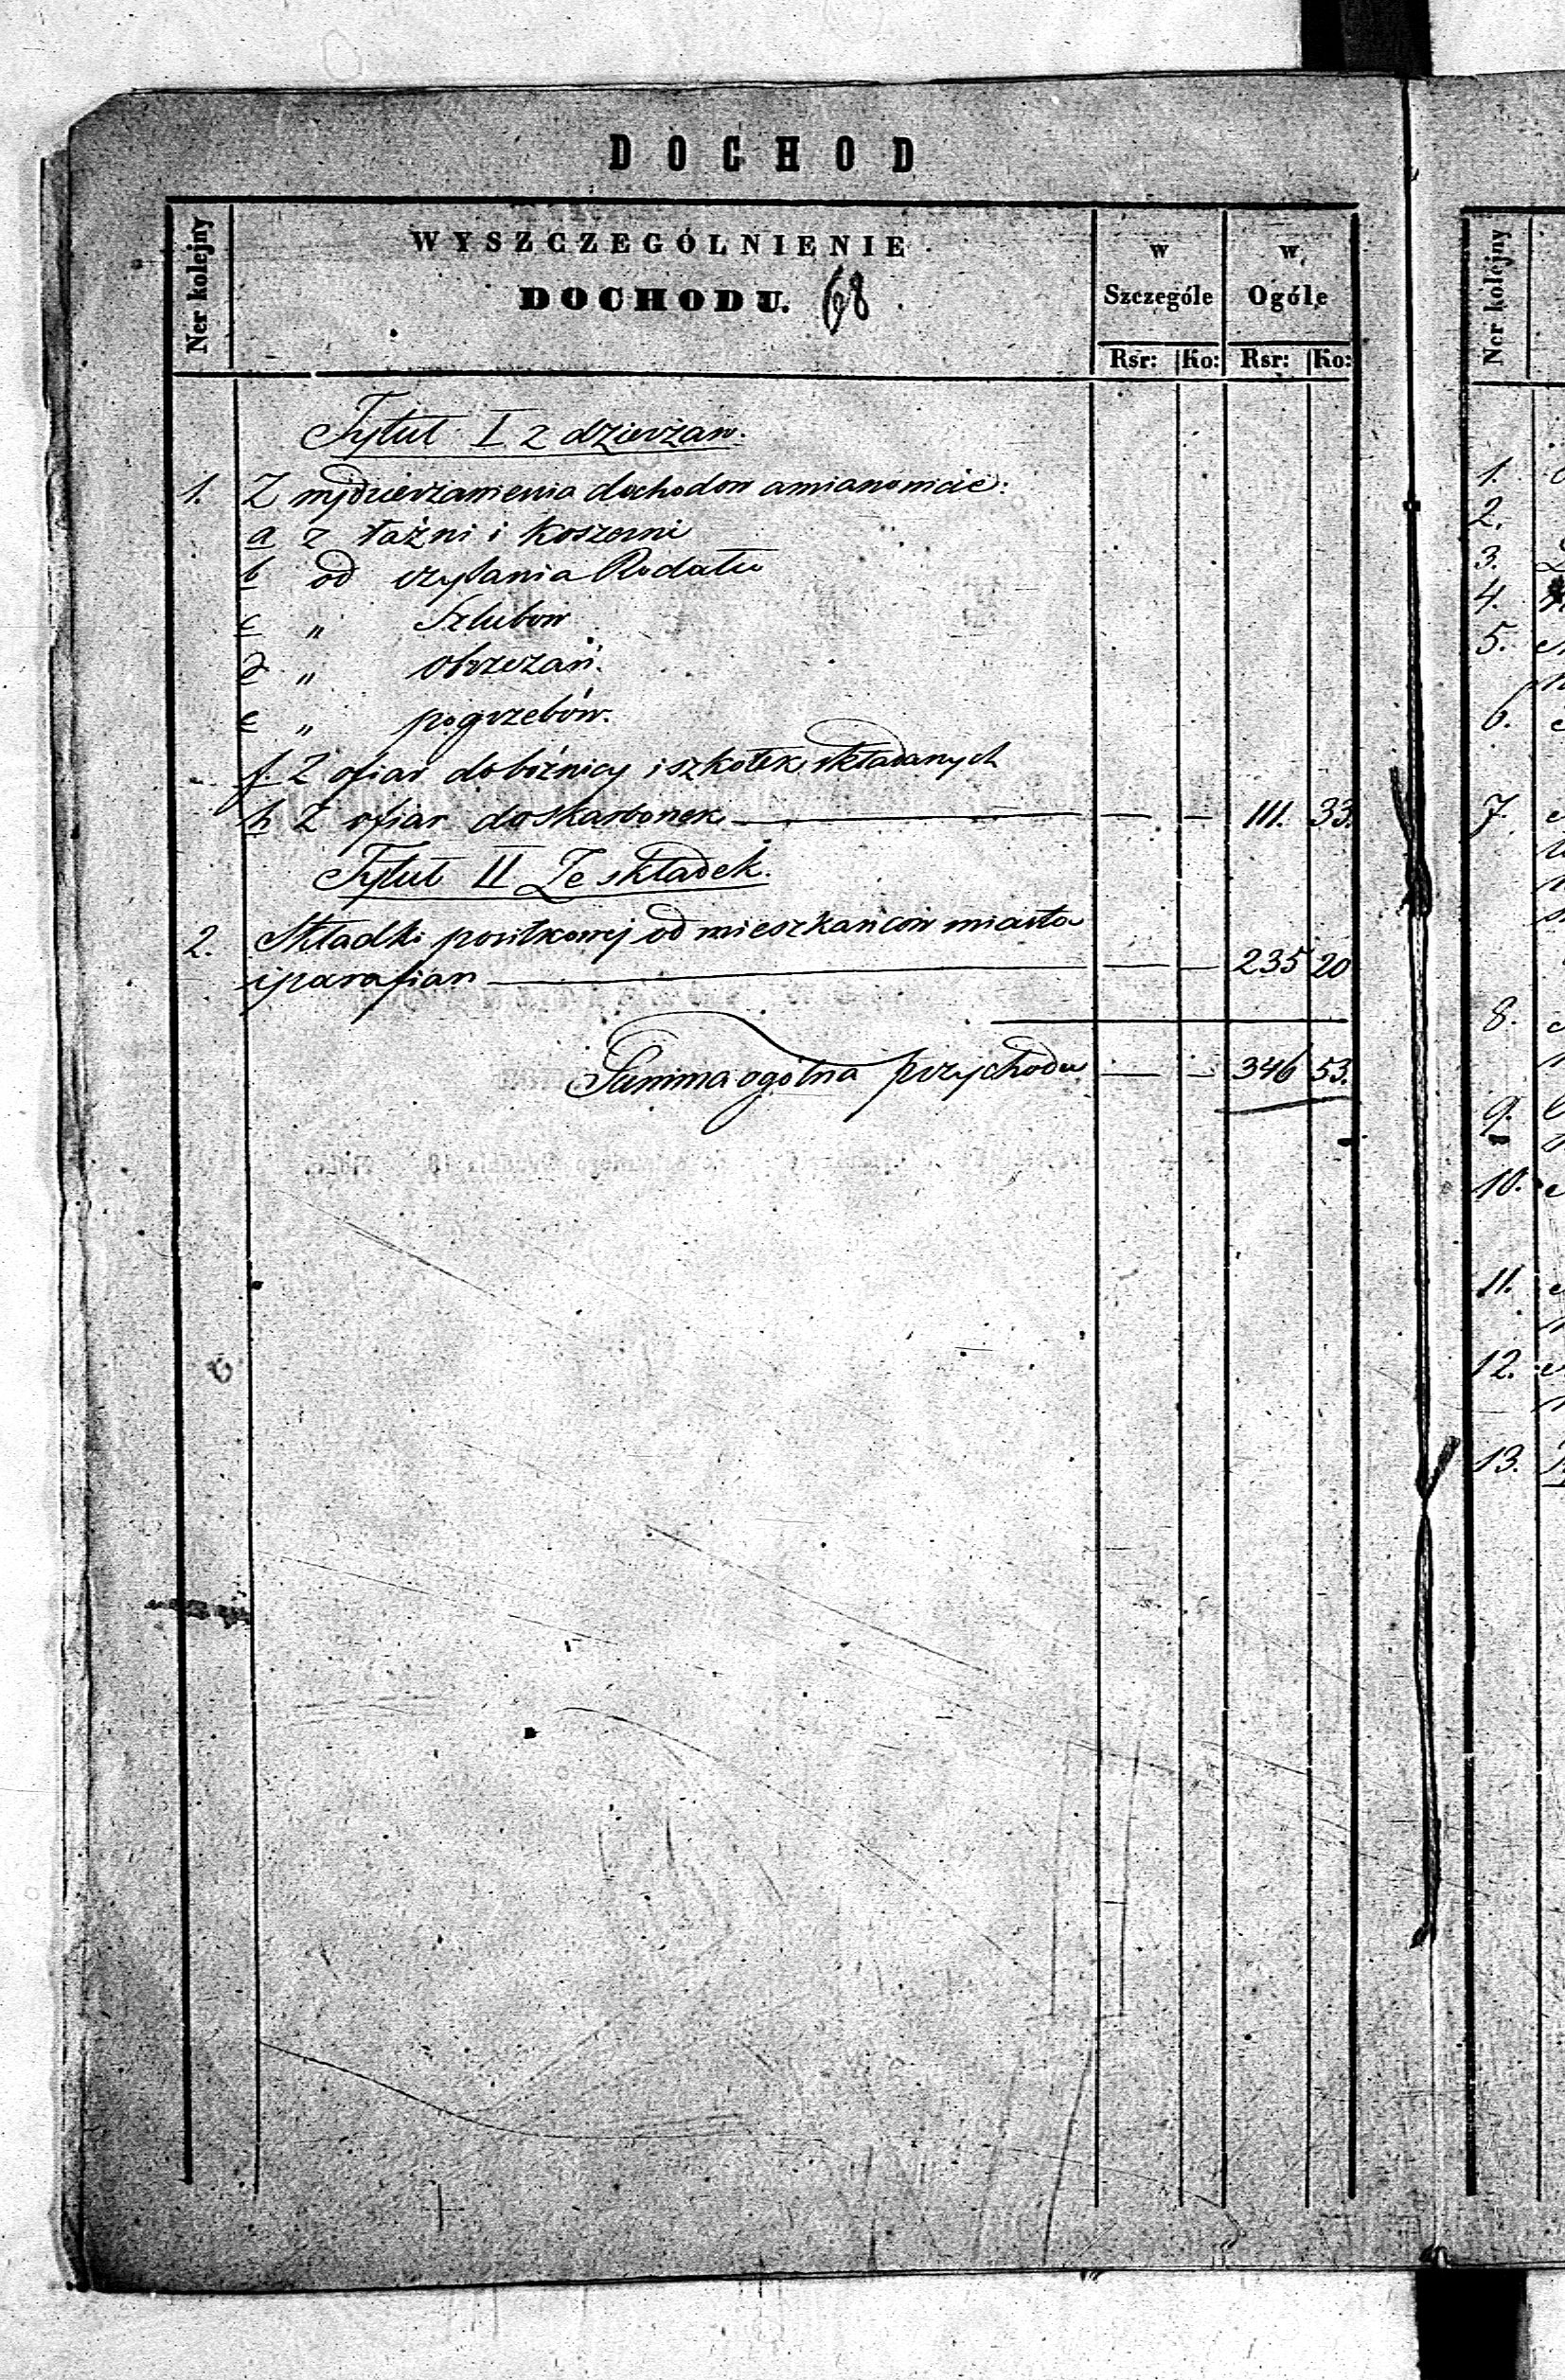 DOCHOD
Ner kolejny
WYSZCZEGÓLNIENIE
DOCHODU. 68
w Szczególe
w Ogóle
Rsr: Ko: Rsr: Ko:
Tytuł I z dzierżaw.
1. Z wydzierżawienia dochodow amianowicie:
a z łaźni i koszerni
b od czytania Rodału
c „ Szlubow
d „ obrzezań.
e „ pogrzebów.
f. Z ofiar do bóźnicy i szkołek składanych
h Z ofiar do skarbonek — — — 111. 33.
Tytuł II Ze składek.
2. Składki posiłkowej od mieszkańców miasta
i parafian — — — 235 20
Summa ogólna przychodu — — 346 53.
Ner kolejny
1.
2.
3.
4.
5.
6.
7.
8.
9.
10.
11.
12.
13.